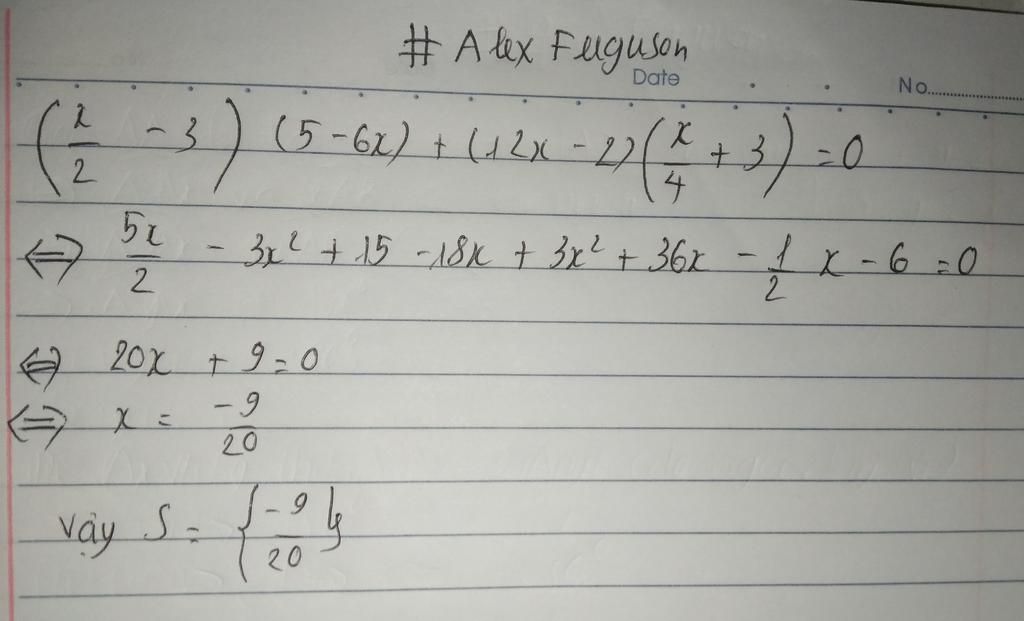 # Alex Ferguson
Date
No
(x/2 - 3) (5 - 6x) + (12x - 2) (x/4 + 3) = 0
⇔ 5x/2 - 3x² + 15 - 18x + 3x² + 36x - 1/2 x - 6 = 0
⇔ 20x + 9 = 0
⇔ x = -9/20
Vậy S = {-9/20}